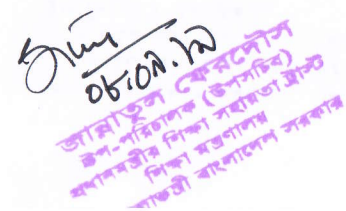 ০৮.০৯.১৯
জান্নাতুল ফেরদৌস
উপ-পরিচালক (উপসচিব)
প্রধানমন্ত্রীর শিক্ষা সহায়তা ট্রাস্ট
শিক্ষা মন্ত্রণালয়
গণপ্রজাতন্ত্রী বাংলাদেশ সরকার